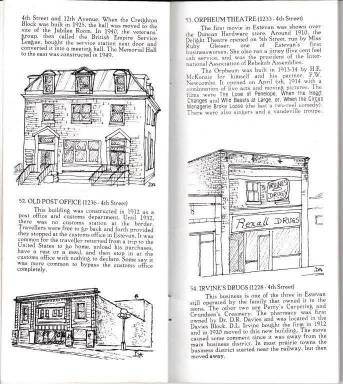 4th Street and 12th Avenue. When the Creighton
Block was built in 1925, the hall was moved to the
site of the Jubilee Room. In 1940, the veterans'
group, then called the British Empire Service
League, bought the service station next door and
converted it into a meeting hall. The Memorial Hall
to the east was constructed in 1949.
52. OLD POST OFFICE (1236 - 4th Street)
This building was constructed in 1912 as a
post office and customs department. Until 1932,
there was no customs station at the border.
Travellers were free to go back and forth provided
they stopped at the customs office in Estevan. It was
common for the traveller returned from a trip to the
United States to go home, unload his purchases,
have a rest or a meal, and then stop in at the
customs office with nothing to declare. Some say it
was more common to bypass the customs office
completely.
53. ORPHEUM THEATRE (1233 - 4th Street)
The first movie in Estevan was shown over
the Duncan Hardware store. Around 1910, the
Delight Theatre opened on 5th Street, run by Miss
Ruby Gleiser, one of Estevan's first
businesswomen. She also ran a jitney (five cent fee)
cab service, and was the president of the Inter-
national Association of Rebekah Assemblies.
The Orpheum was built in 1913-14 by H.E.
McKenzie for himself and his partner, F.W.
Newcombe. It opened on April 6th, 1914 with a
combination of live acts and moving pictures. The
films were The Love of Penelope, When the Heart
Changes and Wild Beasts at Large, or, When the Circus
Menagerie Broke Loose (the last a two-reel comedy).
There were also singers and a vaudeville troupe.
REXALL DRUGS
Rexall DRUGS
54. IRVINE'S DRUGS (1228 - 4th Street)
This business is one of the three in Estevan
still operated by the family that owned it in the
teens. The other two are Perry's Carpeting and
Graunbern's Creamery. The pharmacy was first
owned by Dr. D.R. Davies and was located in the
Davies Block. D.L. Irvine bought the firm in 1912
and in 1920 moved to this new building. The move
caused some comment since it was away from the
main business district. In most prairie towns the
business district started near the railway, but then
moved away.